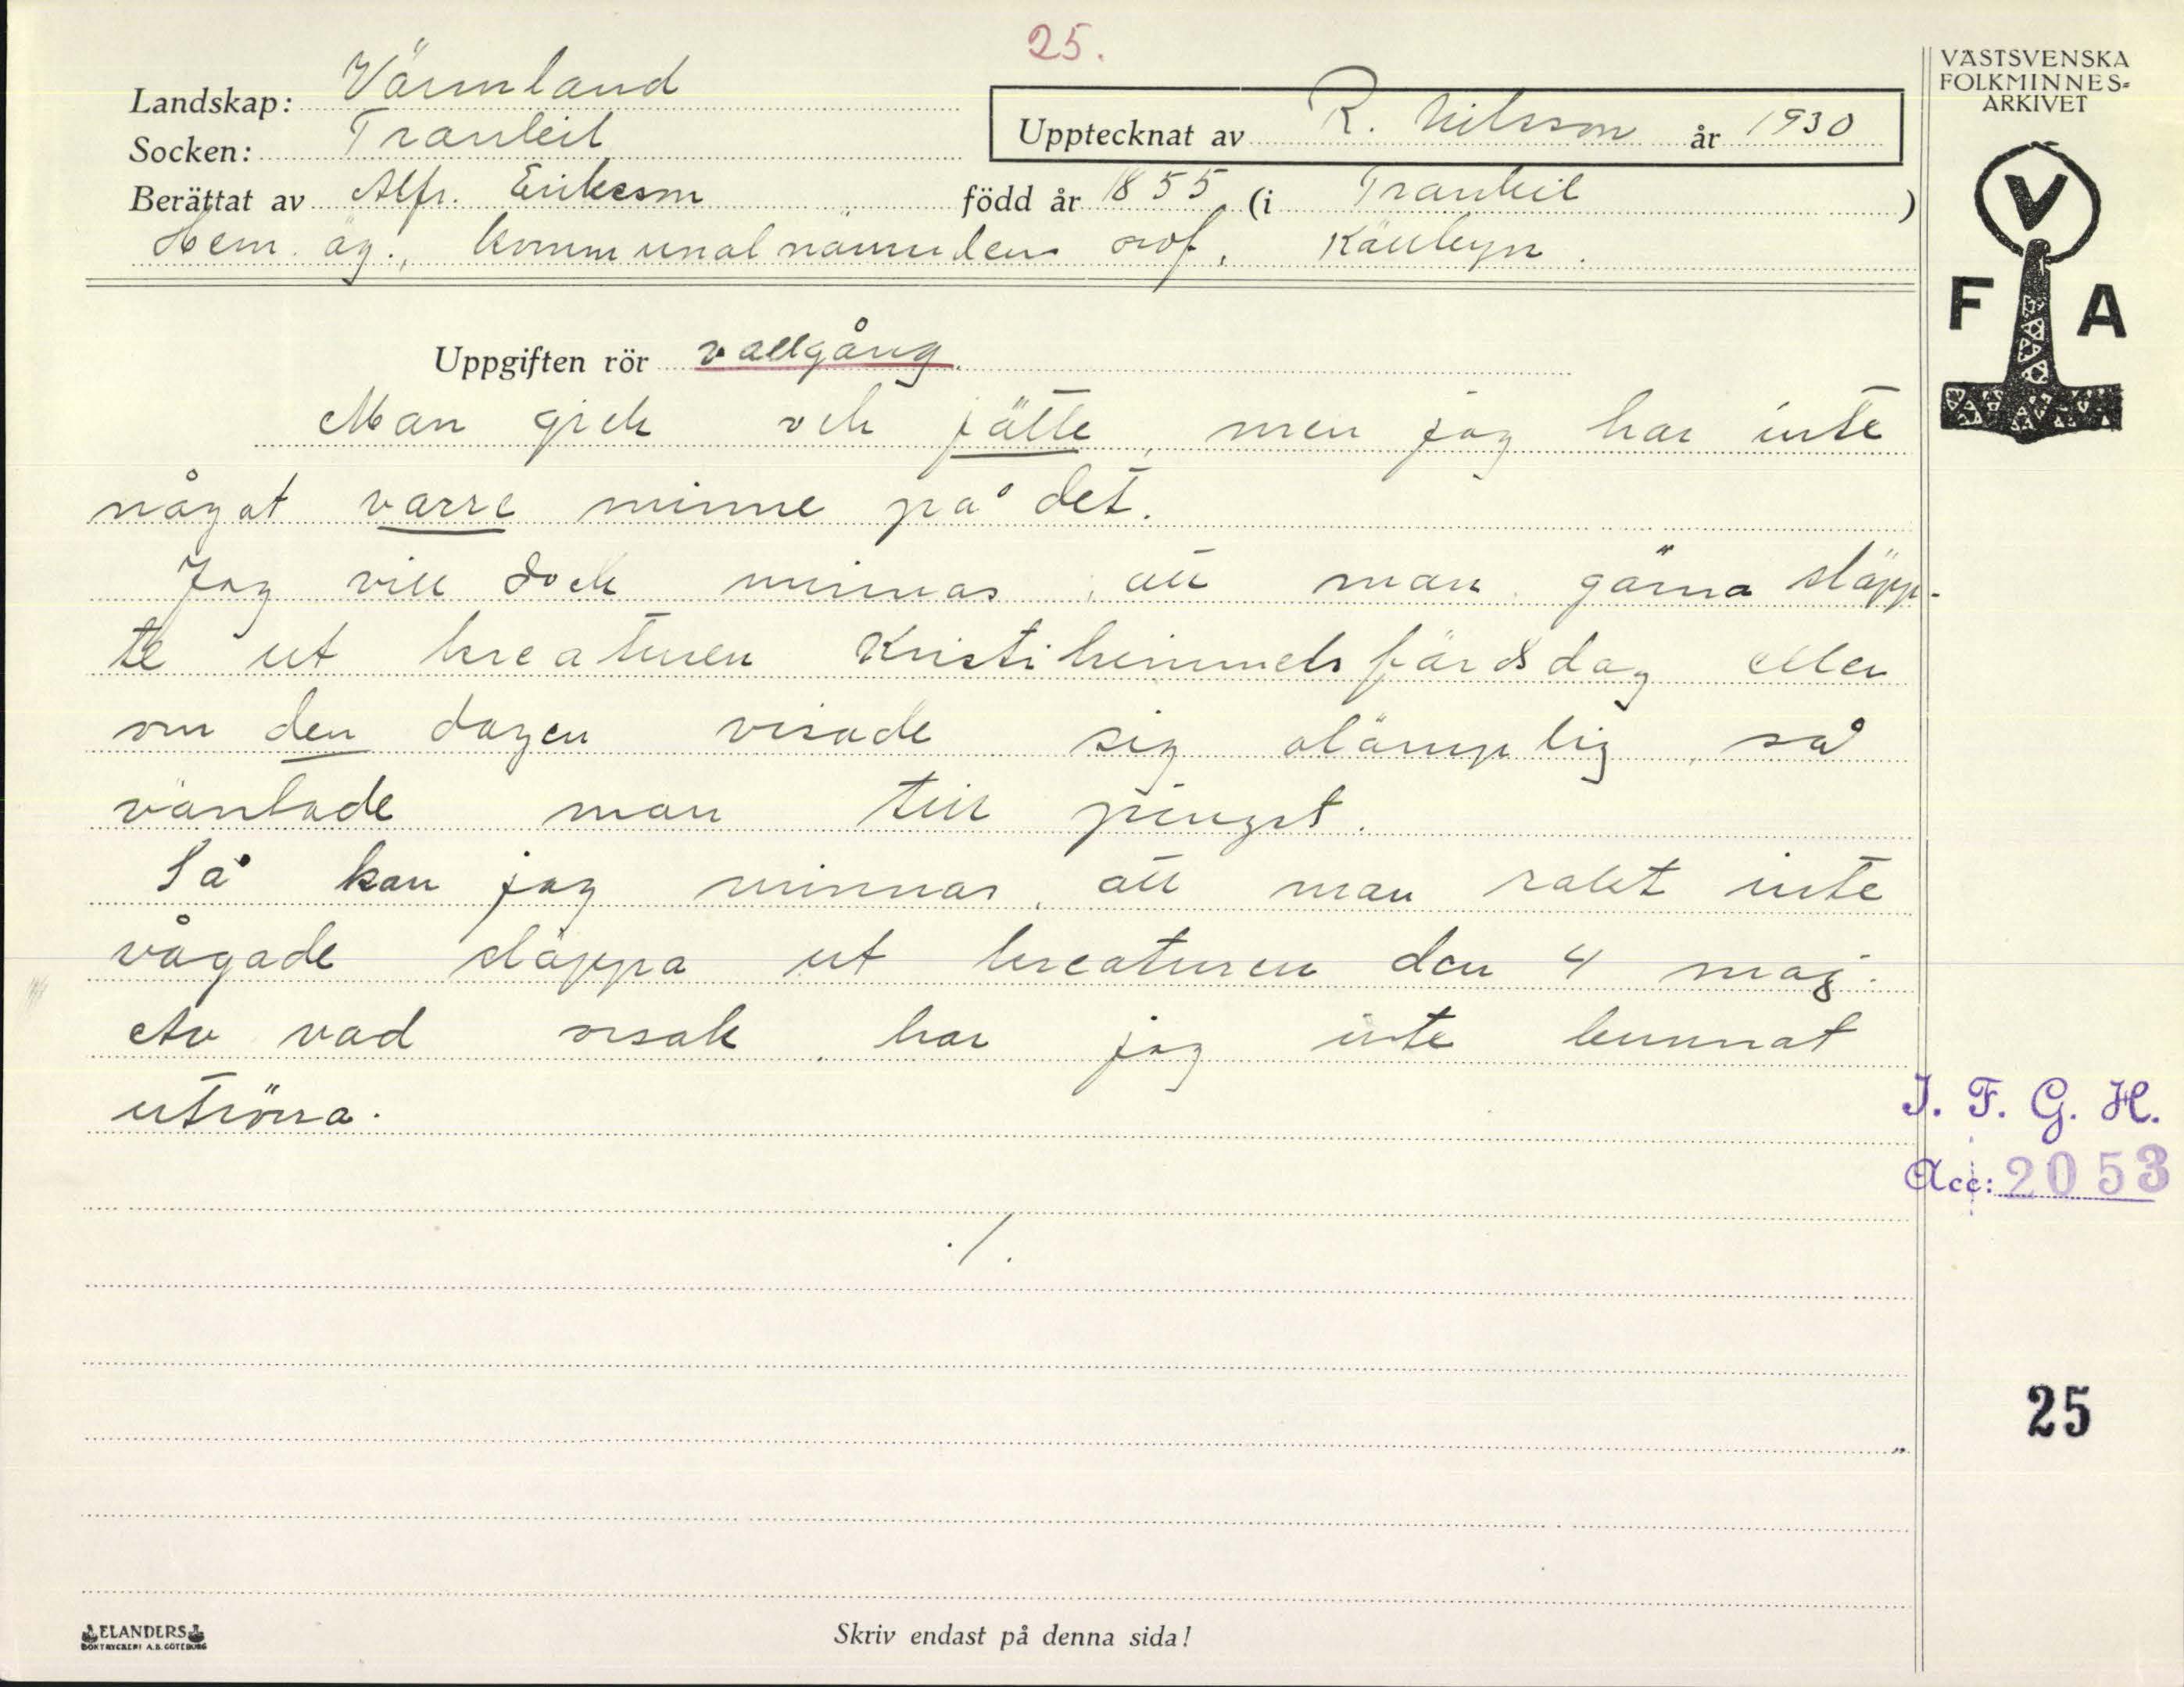 25.
Landskap: Värmland
Socken: Trankil
Upptecknat av R. Nilsson år 1930
Berättat av Alfr. Eriksson född år 1855 (i Trankil )
Hem. äg., kommunalnämndens ordf.
Uppgiften rör vallgång.
Man gick och jätte, men jag har inte
något varre minne på det.
Jag vill dock minnas, att man gärna släpp-
te ut kreaturen Kristihimmelsfärdsdag eller
om den dagen visade sig olämplig, så
väntade man till pingst.
Så kan jag minnas, att man rakt inte
vågade släppa ut kreaturen den 4 maj.
Av vad orsak, har jag inte kunnat
utröna.
./.
Skriv endast på denna sida!
ELANDERS
BOKTRYCKERI A.B. GÖTEBORG
VÄSTSVENSKA
FOLKMINNES-
ARKIVET
V
F A
I. F. G. H.
Acc: 2053
25